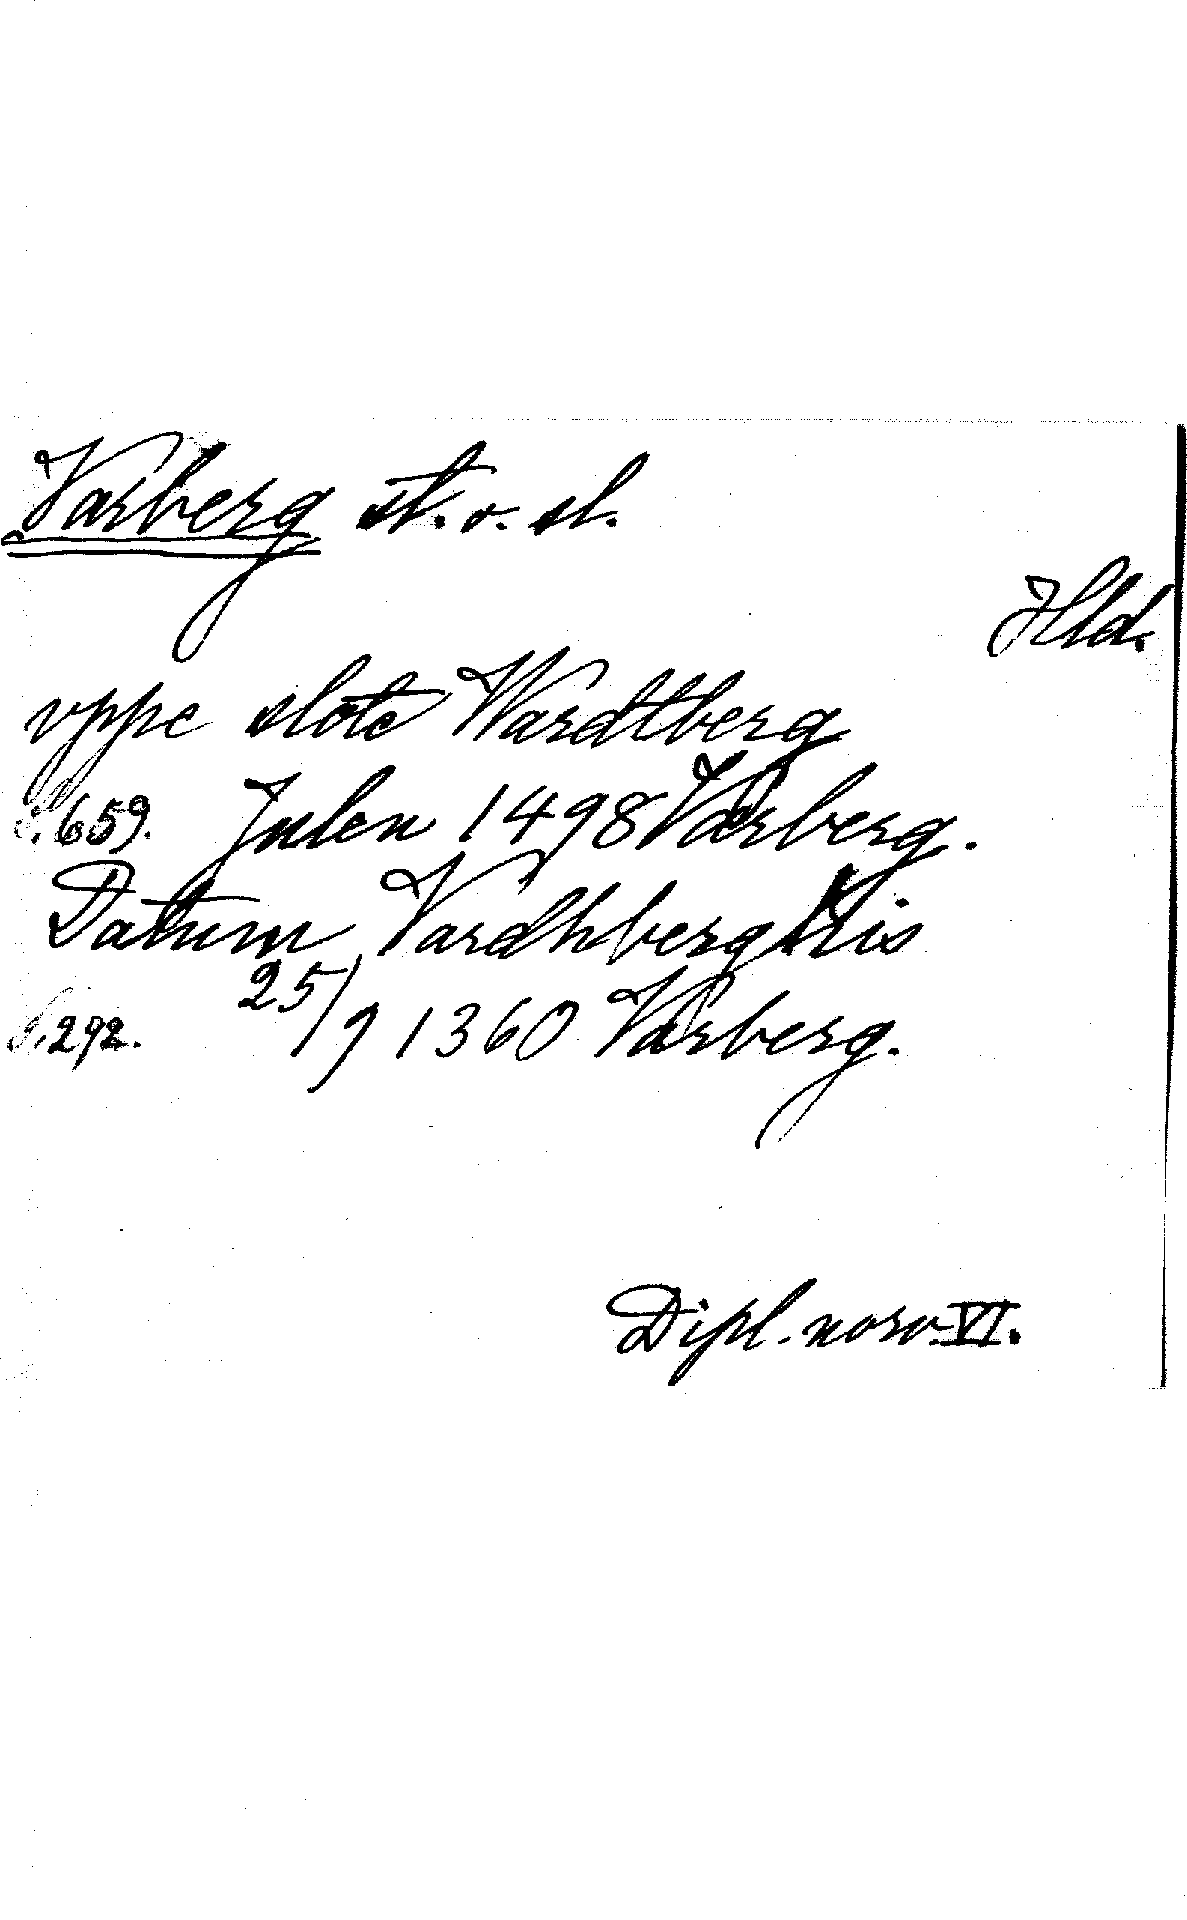 Varberg st. o. sl.
Hld.
vppe slote Wardtberg
S. 659. Julen 1498 Varberg.
Datum Vardhberghis
S. 292. 25/9 1360 Varberg.
Dipl. norv. VI.